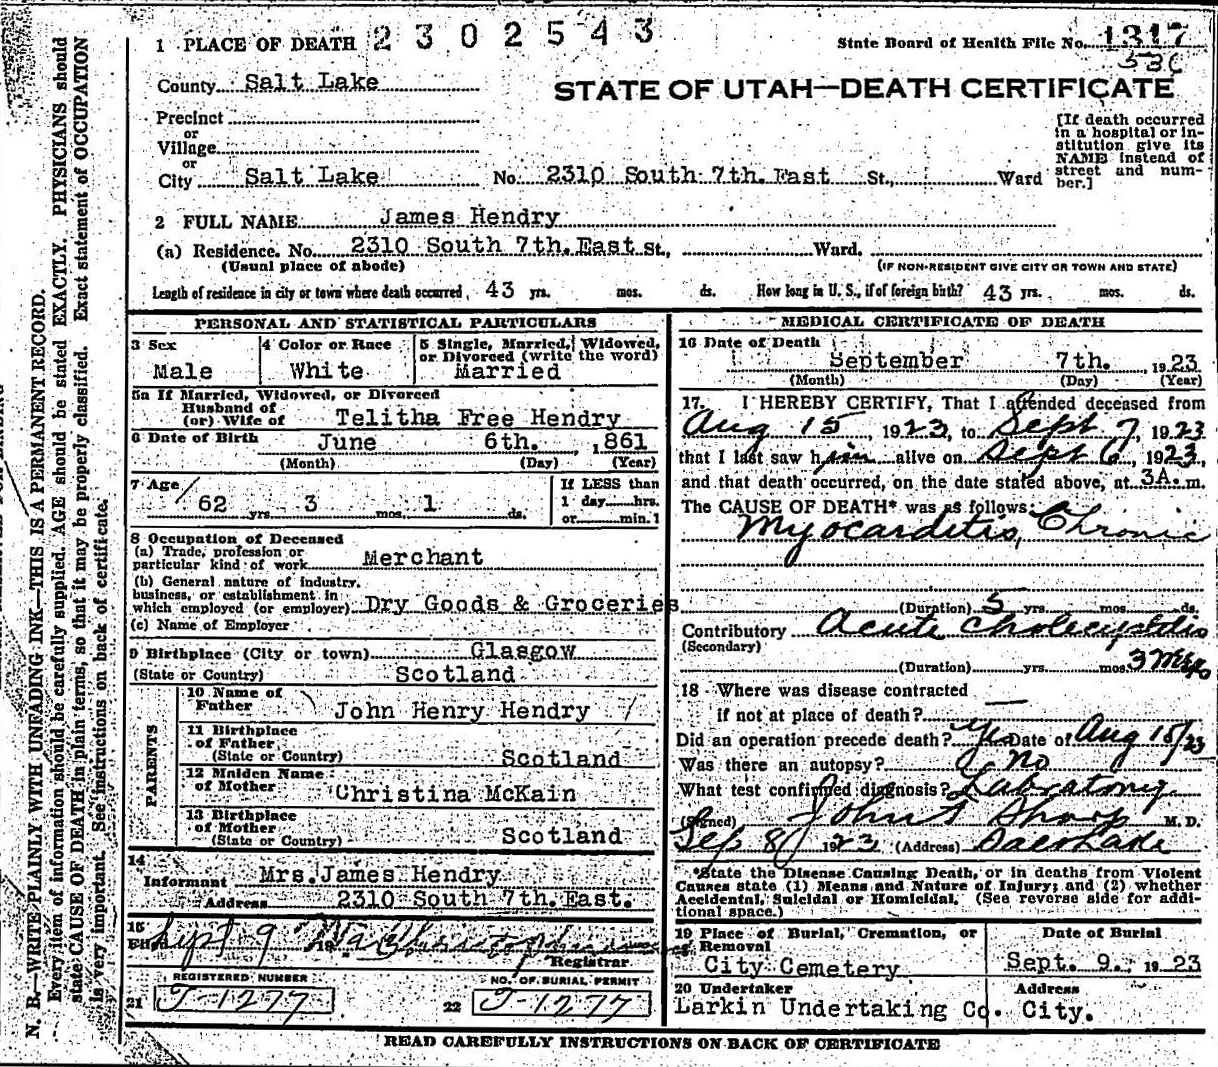 1 PLACE OF DEATH 2302543
State Board of Health File No. 1317
County Salt Lake
STATE OF UTAH—DEATH CERTIFICATE
Precinct
or
Village
or
City Salt Lake No. 2310 South 7th. East St., Ward
[If death occurred in a hospital or institution give its NAME instead of street and number.]
2 FULL NAME James Hendry
(a) Residence. No. 2310 South 7th. East St., Ward.
(Usual place of abode) (IF NON-RESIDENT GIVE CITY OR TOWN AND STATE)
Length of residence in city or town where death occurred 43 yrs. mos. ds. How long in U. S., if of foreign birth? 43 yrs. mos. ds.
PERSONAL AND STATISTICAL PARTICULARS
3 Sex
Male
4 Color or Race
White
5 Single, Married, Widowed,
or Divorced (write the word)
Married
5a If Married, Widowed, or Divorced
Husband of
(or) Wife of Telitha Free Hendry
6 Date of Birth June 6th. 1861
(Month) (Day) (Year)
7 Age
62 yrs 3 mos. 1 ds.
If LESS than
1 day hrs.
or min.
8 Occupation of Deceased
(a) Trade, profession or
particular kind of work Merchant
(b) General nature of industry,
business, or establishment in
which employed (or employer) Dry Goods & Groceries
(c) Name of Employer
9 Birthplace (City or town) Glasgow
(State or Country) Scotland
PARENTS
10 Name of
Father John Henry Hendry
11 Birthplace
of Father
(State or Country) Scotland
12 Maiden Name
of Mother Christina McKain
13 Birthplace
of Mother
(State or Country) Scotland
14
Informant Mrs. James Hendry
Address 2310 South 7th. East.
15
Filed Sept 9 19
Registrar
REGISTERED NUMBER
21 J-1277
NO. OF BURIAL PERMIT
22 J-1277
MEDICAL CERTIFICATE OF DEATH
16 Date of Death
September 7th. 1923
(Month) (Day) (Year)
17. I HEREBY CERTIFY, That I attended deceased from
Aug 15, 1923, to Sept 7, 1923
that I last saw him alive on Sept 6, 1923,
and that death occurred, on the date stated above, at 3A. m.
The CAUSE OF DEATH* was as follows:
Myocarditis, Chronic
(Duration) 5 yrs. mos. ds.
Contributory Acute Cholecystitis
(Secondary)
(Duration) yrs. mos. 3 wks
18 Where was disease contracted
if not at place of death? —
Did an operation precede death? Yes Date of Aug 15/23
Was there an autopsy? No
What test confirmed diagnosis? Labratory
(Signed) John F Sharp M. D.
Sep 8 1923 (Address) Salt Lake
*State the Disease Causing Death, or in deaths from Violent
Causes state (1) Means and Nature of Injury; and (2) whether
Accidental, Suicidal or Homicidal. (See reverse side for addi-
tional space.)
19 Place of Burial, Cremation, or
Removal
City Cemetery
Date of Burial
Sept. 9. 1923
20 Undertaker
Larkin Undertaking Co.
Address
City.
READ CAREFULLY INSTRUCTIONS ON BACK OF CERTIFICATE
N. B.—WRITE PLAINLY WITH UNFADING INK—THIS IS A PERMANENT RECORD.
Every item of information should be carefully supplied. AGE should be stated EXACTLY. PHYSICIANS should
state CAUSE OF DEATH in plain terms, so that it may be properly classified. Exact statement of OCCUPATION
is very important. See instructions on back of certificate.